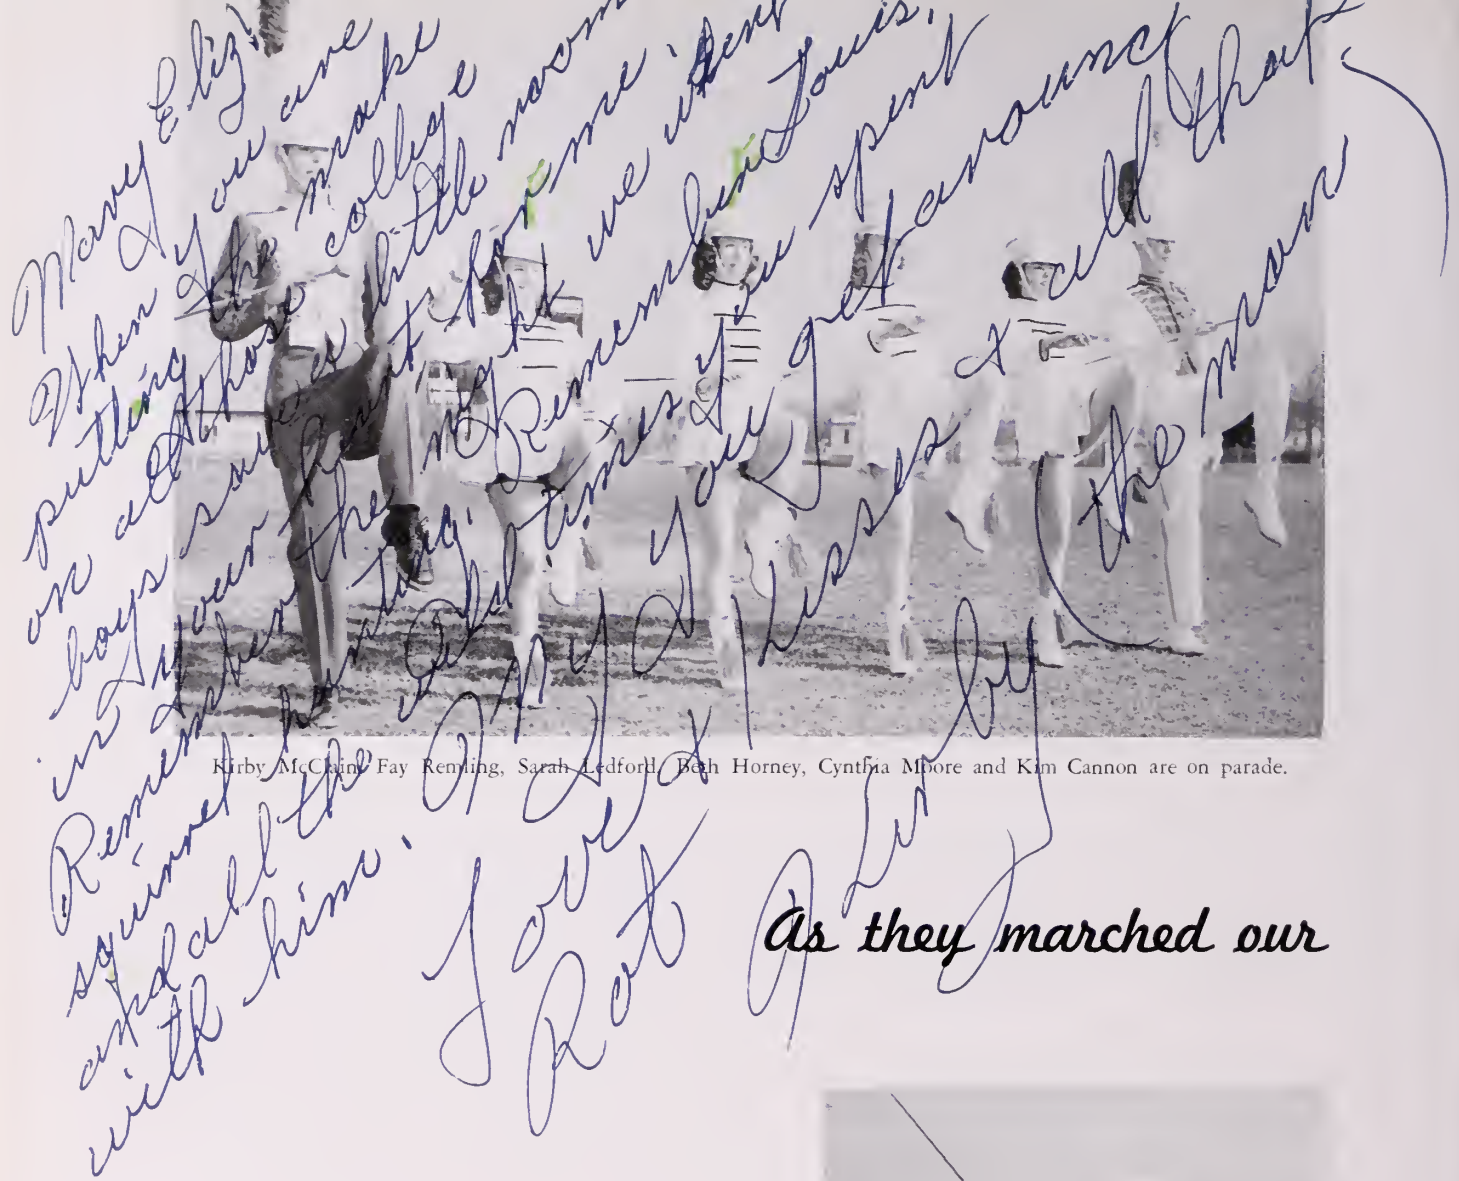 Mary Eliz,
When you are
putting the make
on all those college
boys save a little room
in your heart for me.
Remember the night we went
squirrel hunting. Remember Louis,
and all the times you spent
with him. My you get around
Love & Kisses & all that
Rat
(the man)
Kirby McClain, Fay Remling, Sarah Ledford, Beth Horney, Cynthia Moore and Kim Cannon are on parade.
As they marched our